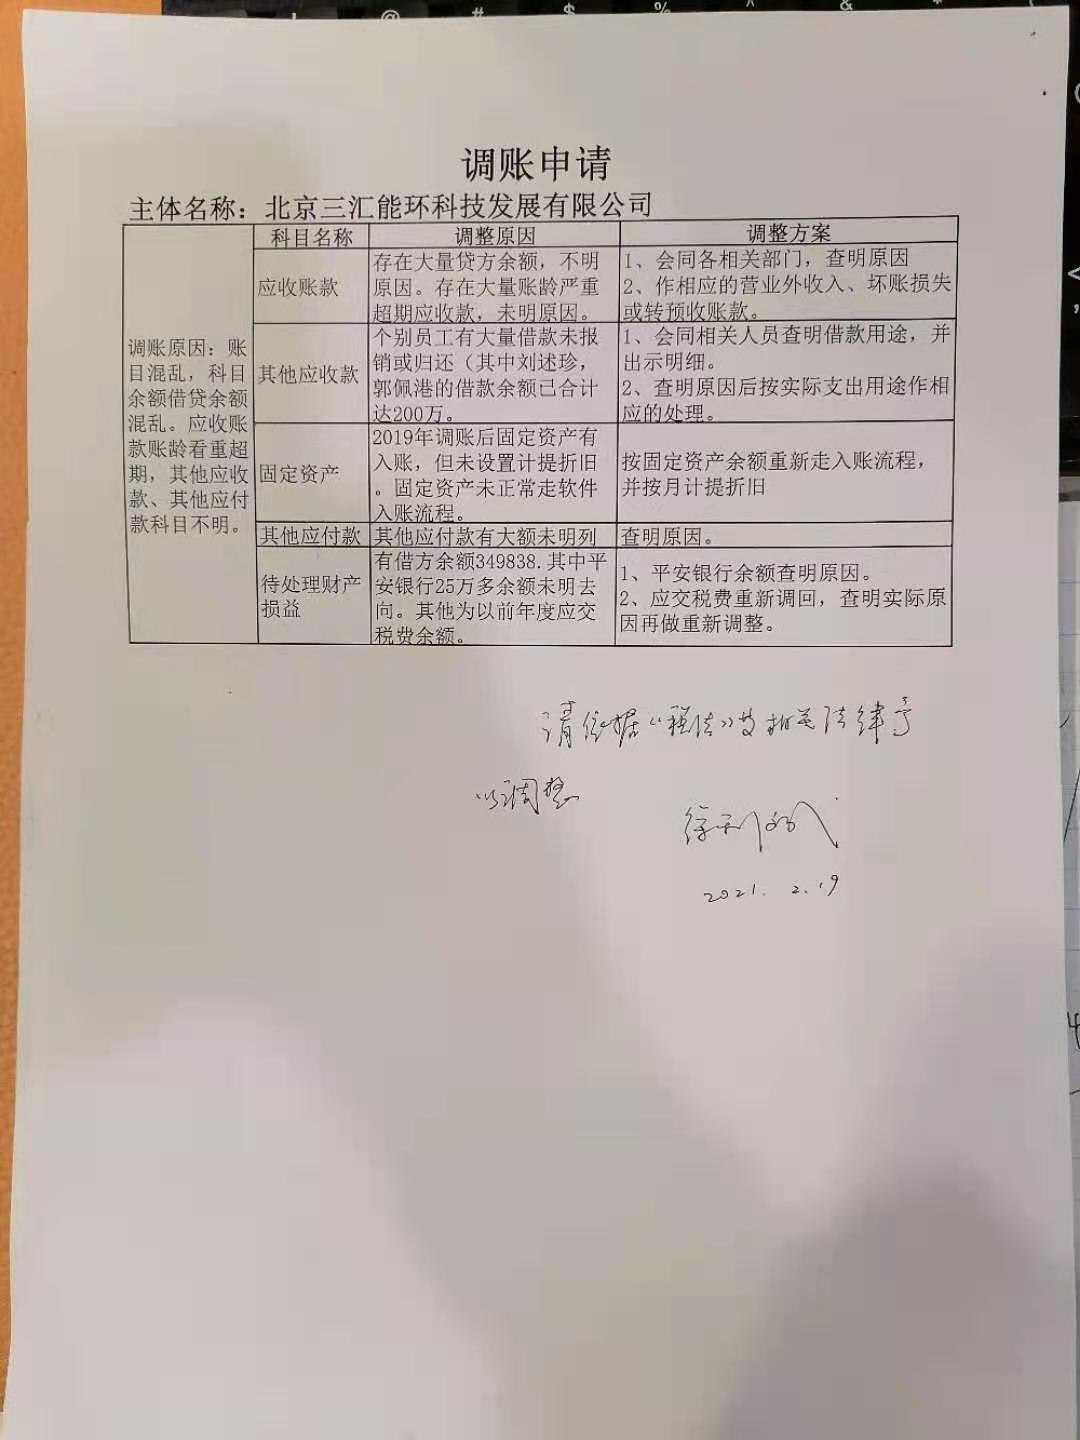 调账申请
主体名称：北京三汇能环科技发展有限公司
科目名称 调整原因 调整方案
调账原因：账
目混乱，科目
余额借贷余额
混乱。应收账
款账龄看重超
期，其他应收
款、其他应付
款科目不明。
应收账款
存在大量贷方余额，不明
原因。存在大量账龄严重
超期应收款，未明原因。
1、会同各相关部门，查明原因
2、作相应的营业外收入、坏账损失
或转预收账款。
其他应收款
个别员工有大量借款未报
销或归还（其中刘述珍，
郭佩港的借款余额已合计
达200万。
1、会同相关人员查明借款用途，并
出示明细。
2、查明原因后按实际支出用途作相
应的处理。
固定资产
2019年调账后固定资产有
入账，但未设置计提折旧
。固定资产未正常走软件
入账流程。
按固定资产余额重新走入账流程，
并按月计提折旧
其他应付款 其他应付款有大额未明列 查明原因。
待处理财产
损益
有借方余额349838.其中平
安银行25万多余额未明去
向。其他为以前年度应交
税费余额。
1、平安银行余额查明原因。
2、应交税费重新调回，查明实际原
因再做重新调整。
请依据《税法》及相关法律予
以调整
2021.2.19